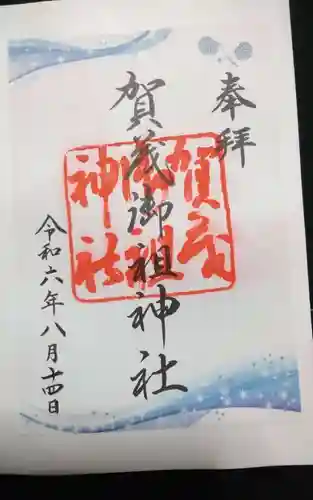 奉拝
賀茂御祖神社
賀茂御祖神社
令和六年八月十四日